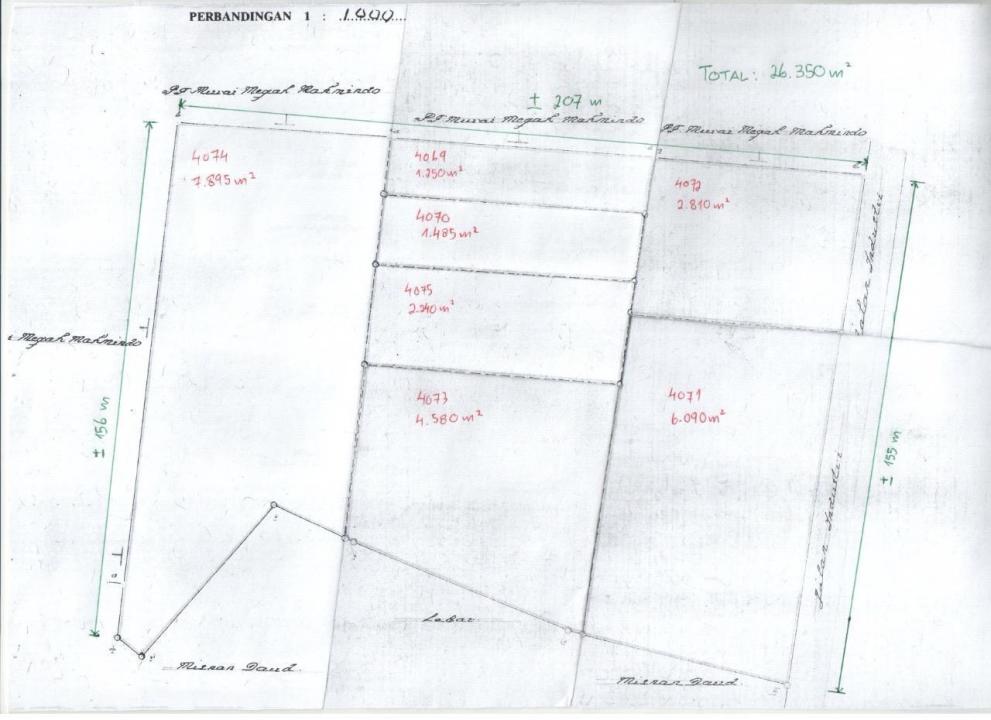 PERBANDINGAN 1 : 1000
TOTAL : 26.350 m²
PT Murai Megah Makmindo
± 207 m
PT Murai Megah Makmindo
PT Murai Megah Makmindo
4074
7.895 m²
4069
1.250 m²
4072
2.810 m²
4070
1.485 m²
Jalan Industri
4075
2.240 m²
i Megah Makmindo
4073
4.580 m²
4071
6.090 m²
± 156 m
± 155 m
Jalan Industri
Lebar
Misran Daud
Misran Daud